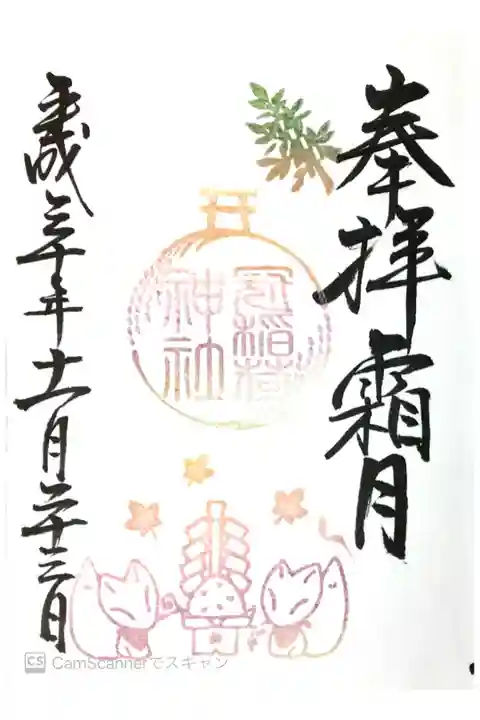 奉拝 霜月
冠稲荷
神社
平成三十年十一月二十三日
CS CamScannerでスキャン